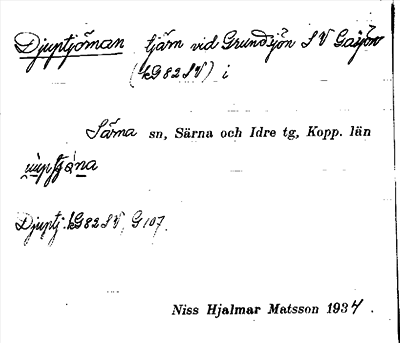 Djuptjöman tjärn vid Grundsjön SV Gaijön
(kG82SV) i
Särna sn, Särna och Idre tg, Kopp. län
Djuptj. kG82SV, G107.
Niss Hjalmar Matsson 1934.